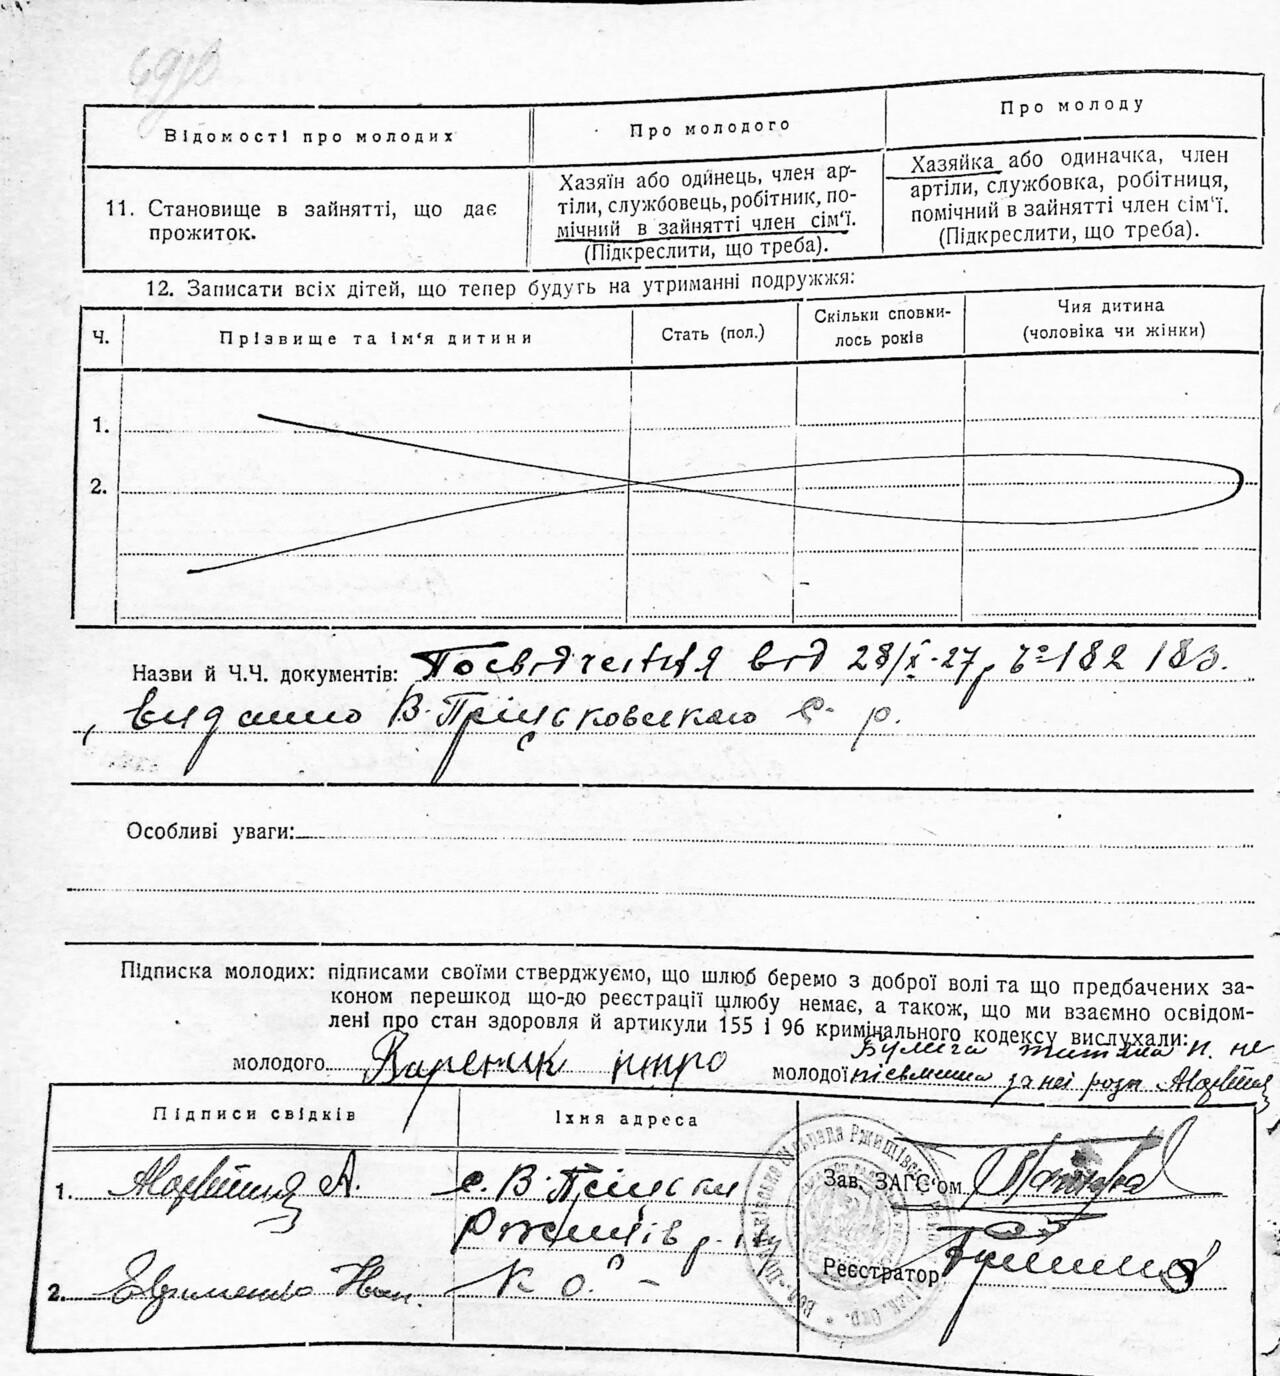 Відомості про молодих
Про молодого
Про молоду
11. Становище в зайнятті, що дає
прожиток.
Хазяїн або одинець, член ар-
тіли, службовець, робітник, по-
мічний в зайнятті член сім'ї.
(Підкреслити, що треба).
Хазяйка або одиначка, член
артіли, службовка, робітниця,
помічний в зайнятті член сім'ї.
(Підкреслити, що треба).
12. Записати всіх дітей, що тепер будуть на утриманні подружжя:
Ч.
Прізвище та ім'я дитини
Стать (пол.)
Скільки сповни-
лось років
Чия дитина
(чоловіка чи жінки)
1.
2.
Назви й Ч.Ч. документів: Посвідчення від 28/X-27р 182 183.
видано В-Пріцьковською с. р.
Особливі уваги:
Підписка молодих: підписами своїми стверджуємо, що шлюб беремо з доброї волі та що предбачених за-
коном перешкод що-до реєстрації шлюбу немає, а також, що ми взаємно освідом-
лені про стан здоровля й артикули 155 і 96 кримінального кодексу вислухали:
молодого Вареник Петро
Булига не
молодої письменна за неї розп
Підписи свідків
Їхня адреса
1. А. с. В-Пріцьки
Ржищів р-ну
Зав. ЗАГС'ом
2. Єфименко Іван. К О.
Реєстратор